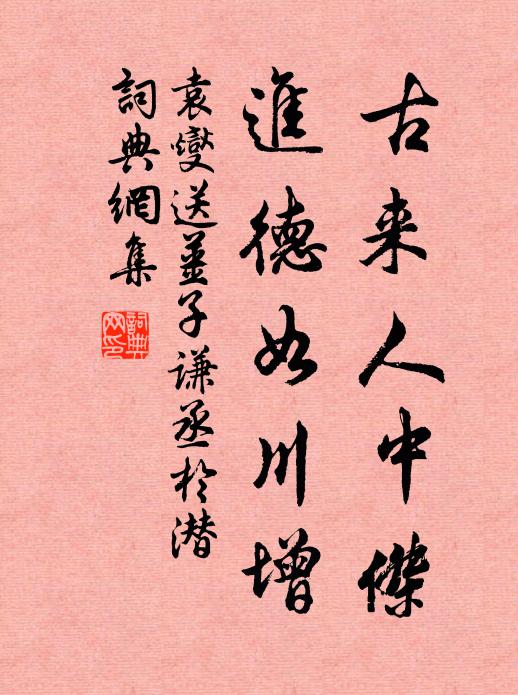 古来人中傑
進德如川增
袁燮送姜子謙丞於潛
詞典網集
詞典網印